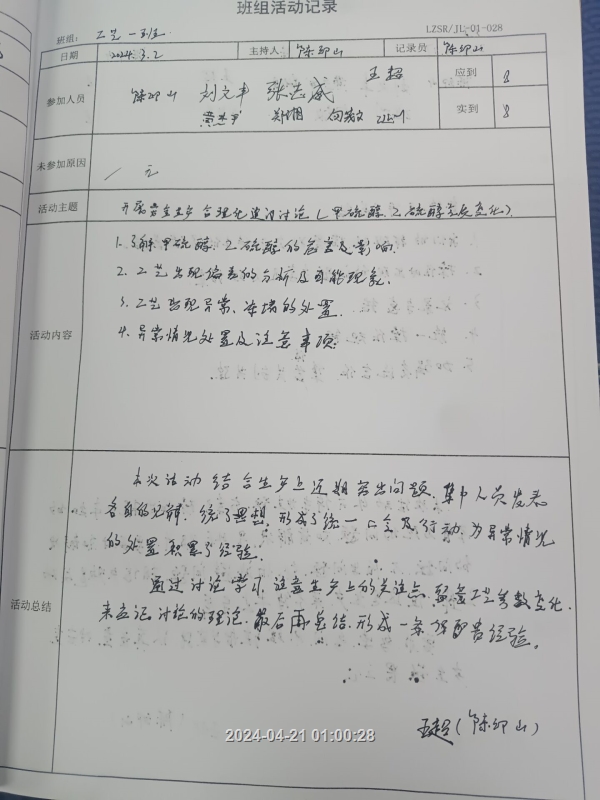 班组活动记录
LZSR/JL-01-028
班组: 工艺一班
日期 2024.3.2 主持人 陈卯山 记录员 陈卯山
参加人员 陈卯山 刘文丰 张志威 王超 应到 8
实到 8
未参加原因 / 无
活动主题 开展安全生产合理化建设讨论(甲硫醇、乙硫醇变化).
活动内容
1. 了解甲硫醇、乙硫醇的危害及影响.
2. 工艺出现偏差的分析及可能现象.
3. 工艺出现异常、冻堵的处置.
4. 异常情况处置及注意事项.
活动总结
本次活动结合生产上近期突出问题, 集中人员发表
各自的见解, 统了思想, 形成了统一口令及行动, 为异常情况
的处置积累了经验.
通过讨论学习, 注意生产上的关注点, 工艺参数变化,
来讨论的理论, 最后再总结, 形成一条经验。
王超(陈卯山)
2024-04-21 01:00:28